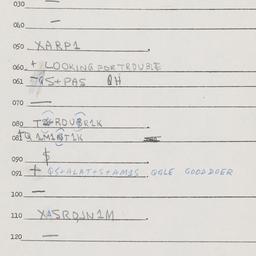 030 —
040 —
050 XARP1
060 + LOOKING FOR TROUBLE
061 S+PAS QH
070 —
080
081
090 $
091 + QS+ALAT+S+AM1S QGLE GOOD DOER
100 —
110 XASRQJN1M
120 —